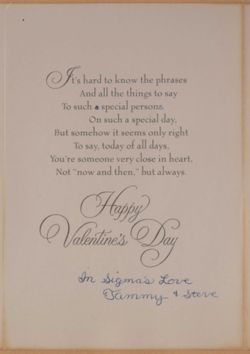 It's hard to know the phrases
And all the things to say
To such a special persons
On such a special day,
But somehow it seems only right
To say, today of all days,
You're someone very close in heart,
Not "now and then," but always.
Happy
Valentine's Day
In Sigma's Love
Tammy & Steve